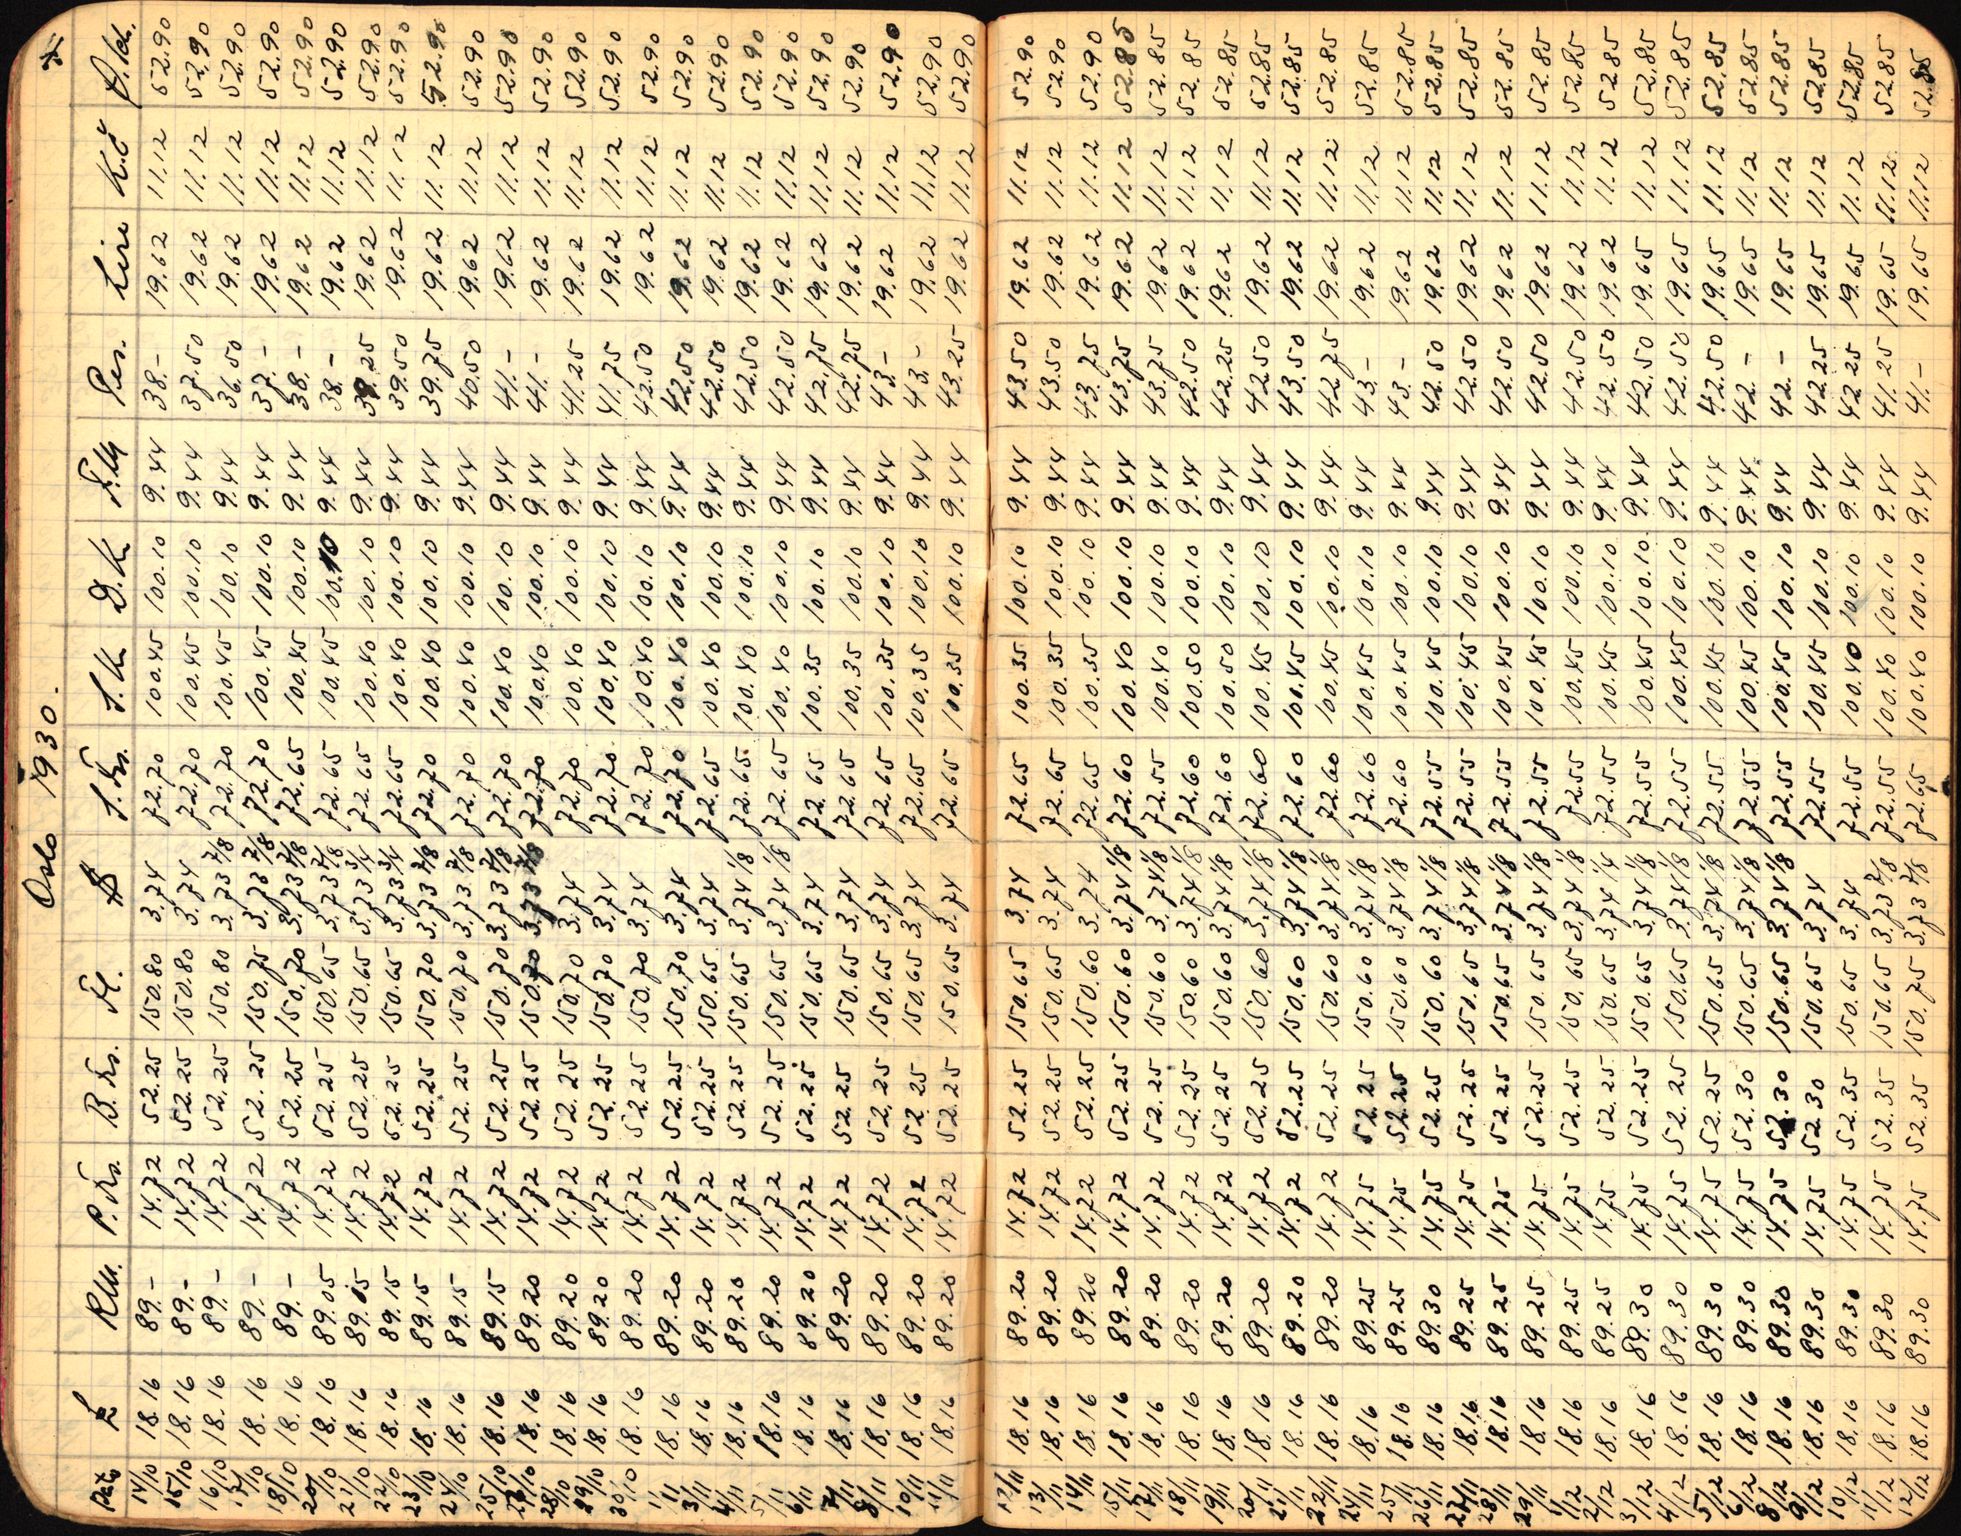 4
Oslo 1930.
Dato £ RM. P.Frs. B.Frs. Fl. $ S.Frs. S.Kr D.Kr F.M Pes. Lire K.č Ö.sch.
14/10 18.16 89.- 14.72 52.25 150.80 3.74 72.70 100.45 100.10 9.44 38.- 19.62 11.12 52.90
15/10 18.16 89.- 14.72 52.25 150.80 3.74 72.70 100.45 100.10 9.44 37.50 19.62 11.12 52.90
16/10 18.16 89.- 14.72 52.25 150.80 3.73 7/8 72.70 100.45 100.10 9.44 36.50 19.62 11.12 52.90
17/10 18.16 89.- 14.72 52.25 150.75 3.73 7/8 72.70 100.45 100.10 9.44 37.- 19.62 11.12 52.90
18/10 18.16 89.- 14.72 52.25 150.70 3.73 7/8 72.65 100.45 100.10 9.44 38.- 19.62 11.12 52.90
20/10 18.16 89.05 14.72 52.25 150.65 3.73 7/8 72.65 100.45 100.10 9.44 38.- 19.62 11.12 52.90
21/10 18.16 89.15 14.72 52.25 150.65 3.73 3/4 72.65 100.40 100.10 9.44 39.25 19.62 11.12 52.90
22/10 18.16 89.15 14.72 52.25 150.65 3.73 3/4 72.65 100.40 100.10 9.44 39.50 19.62 11.12 52.90
23/10 18.16 89.15 14.72 52.25 150.70 3.73 7/8 72.70 100.40 100.10 9.44 39.75 19.62 11.12 52.90
24/10 18.16 89.15 14.72 52.25 150.70 3.73 7/8 72.70 100.40 100.10 9.44 40.50 19.62 11.12 52.90
25/10 18.16 89.15 14.72 52.25 150.70 3.73 7/8 72.70 100.40 100.10 9.44 41.- 19.62 11.12 52.90
27/10 18.16 89.20 14.72 52.25 150.70 3.73 7/8 72.70 100.40 100.10 9.44 41.- 9.62 11.12 52.90
28/10 18.16 89.20 14.72 52.25 150.70 3.74 72.70 100.40 100.10 9.44 41.25 19.62 11.12 52.90
29/10 18.16 89.20 14.72 52.25 150.70 3.74 72.70 100.40 100.10 9.44 41.75 19.62 11.12 52.90
30/10 18.16 89.20 14.72 52.25 150.70 3.74 72.70 100.40 100.10 9.44 42.50 19.62 11.12 52.90
1/11 18.16 89.20 14.72 52.25 150.70 3.74 72.70 100.40 100.10 9.44 42.50 19.62 11.12 52.90
3/11 18.16 89.20 14.72 52.25 150.65 3.74 72.65 100.40 100.10 9.44 42.50 19.62 11.12 52.90
4/11 18.16 89.20 14.72 52.25 150.65 3.74 1/8 72.65 100.40 100.10 9.44 42.50 19.62 11.12 52.90
5/11 18.16 89.20 14.72 52.25 150.65 3.74 1/8 72.65 100.40 100.10 9.44 42.50 19.62 11.12 52.90
6/11 18.16 89.20 14.72 52.25 150.65 3.74 72.65 100.35 100.10 9.44 42.75 19.62 11.12 52.90
7/11 18.16 89.20 14.72 52.25 150.65 3.74 72.65 100.35 100.10 9.44 42.75 19.62 11.12 52.90
8/11 18.16 89.20 14.72 52.25 150.65 3.74 72.65 100.35 100.10 9.44 43.- 19.62 11.12 52.90
10/11 18.16 89.20 14.72 52.25 150.65 3.74 72.65 100.35 100.10 9.44 43.- 19.62 11.12 52.90
11/11 18.16 89.20 14.72 52.25 150.65 3.74 72.65 100.35 100.10 9.44 43.25 19.62 11.12 52.90
12/11 18.16 89.20 14.72 52.25 150.65 3.74 72.65 100.35 100.10 9.44 43.50 19.62 11.12 52.90
13/11 18.16 89.20 14.72 52.25 150.65 3.74 72.65 100.35 100.10 9.44 43.50 19.62 11.12 52.90
14/11 18.16 89.20 14.72 52.25 150.60 3.74 72.65 100.35 100.10 9.44 43.75 19.62 11.12 52.90
15/11 18.16 89.20 14.72 52.25 150.60 3.74 1/8 72.60 100.40 100.10 9.44 43.75 19.62 11.12 52.85
17/11 18.16 89.20 14.72 52.25 150.60 3.74 1/8 72.55 100.40 100.10 9.44 43.75 19.62 11.12 52.85
18/11 18.16 89.20 14.72 52.25 150.60 3.74 1/8 72.60 100.50 100.10 9.44 42.50 19.62 11.12 52.85
19/11 18.16 89.20 14.72 52.25 150.60 3.74 1/8 72.60 100.50 100.10 9.44 42.25 19.62 11.12 52.85
20/11 18.16 89.20 14.72 52.25 150.60 3.74 1/8 72.60 100.45 100.10 9.44 42.50 19.62 11.12 52.85
21/11 18.16 89.20 14.72 52.25 150.60 3.74 1/8 72.60 100.45 100.10 9.44 43.50 19.62 11.12 52.85
22/11 18.16 89.20 14.72 52.25 150.60 3.74 1/8 72.60 100.45 100.10 9.44 42.75 19.62 11.12 52.85
24/11 18.16 89.25 14.75 52.25 150.60 3.74 1/8 72.60 100.45 100.10 9.44 43.- 19.62 11.12 52.85
25/11 18.16 89.25 14.75 52.25 150.60 3.74 1/8 72.60 100.45 100.10 9.44 43.- 19.62 11.12 52.85
26/11 18.16 89.30 14.75 52.25 150.60 3.74 1/8 72.55 100.45 100.10 9.44 42.50 19.62 11.12 52.85
27/11 18.16 89.25 14.75 52.25 150.65 3.74 1/8 72.55 100.45 100.10 9.44 42.50 19.62 11.12 52.85
28/11 18.16 89.25 14.75 52.25 150.65 3.74 1/8 72.55 100.45 100.10 9.44 42.50 19.62 11.12 52.85
29/11 18.16 89.25 14.75 52.25 150.65 3.74 1/8 72.55 100.45 100.10 9.44 42.50 19.62 11.12 52.85
1/12 18.16 89.25 14.75 52.25 150.65 3.74 1/8 72.55 100.45 100.10 9.44 42.50 19.62 11.12 52.85
2/12 18.16 89.25 14.75 52.25 150.65 3.74 1/4 72.55 100.45 100.10 9.44 42.50 19.62 11.12 52.85
3/12 18.16 89.30 14.75 52.25 150.65 3.74 1/8 72.55 100.45 100.10 9.44 42.50 19.65 11.12 52.85
4/12 18.16 89.30 14.75 52.25 150.65 3.74 1/8 72.55 100.45 100.10 9.44 42.50 19.65 11.12 52.85
5/12 18.16 89.30 14.75 52.25 150.65 3.74 1/8 72.55 100.45 100.10 9.44 42.50 19.65 11.12 52.85
6/12 18.16 89.30 14.75 52.30 150.65 3.74 1/8 72.55 100.45 100.10 9.44 42.- 19.65 11.12 52.85
8/12 18.16 89.30 14.75 52.30 150.65 3.74 1/8 72.55 100.45 100.10 9.44 42.- 19.65 11.12 52.85
9/12 18.16 89.30 14.75 52.30 150.65 3.74 72.55 100.45 100.10 9.44 42.25 19.65 11.12 52.85
10/12 18.16 89.30 14.75 52.35 150.65 3.74 72.55 100.40 100.10 9.44 42.25 19.65 11.12 52.85
11/12 18.16 89.30 14.75 52.35 150.65 3.73 7/8 72.55 100.40 100.10 9.44 41.25 19.65 11.12 52.85
12/12 18.16 89.30 14.75 52.35 150.75 3.73 7/8 72.65 100.40 100.10 9.44 41.- 19.65 11.12 52.85